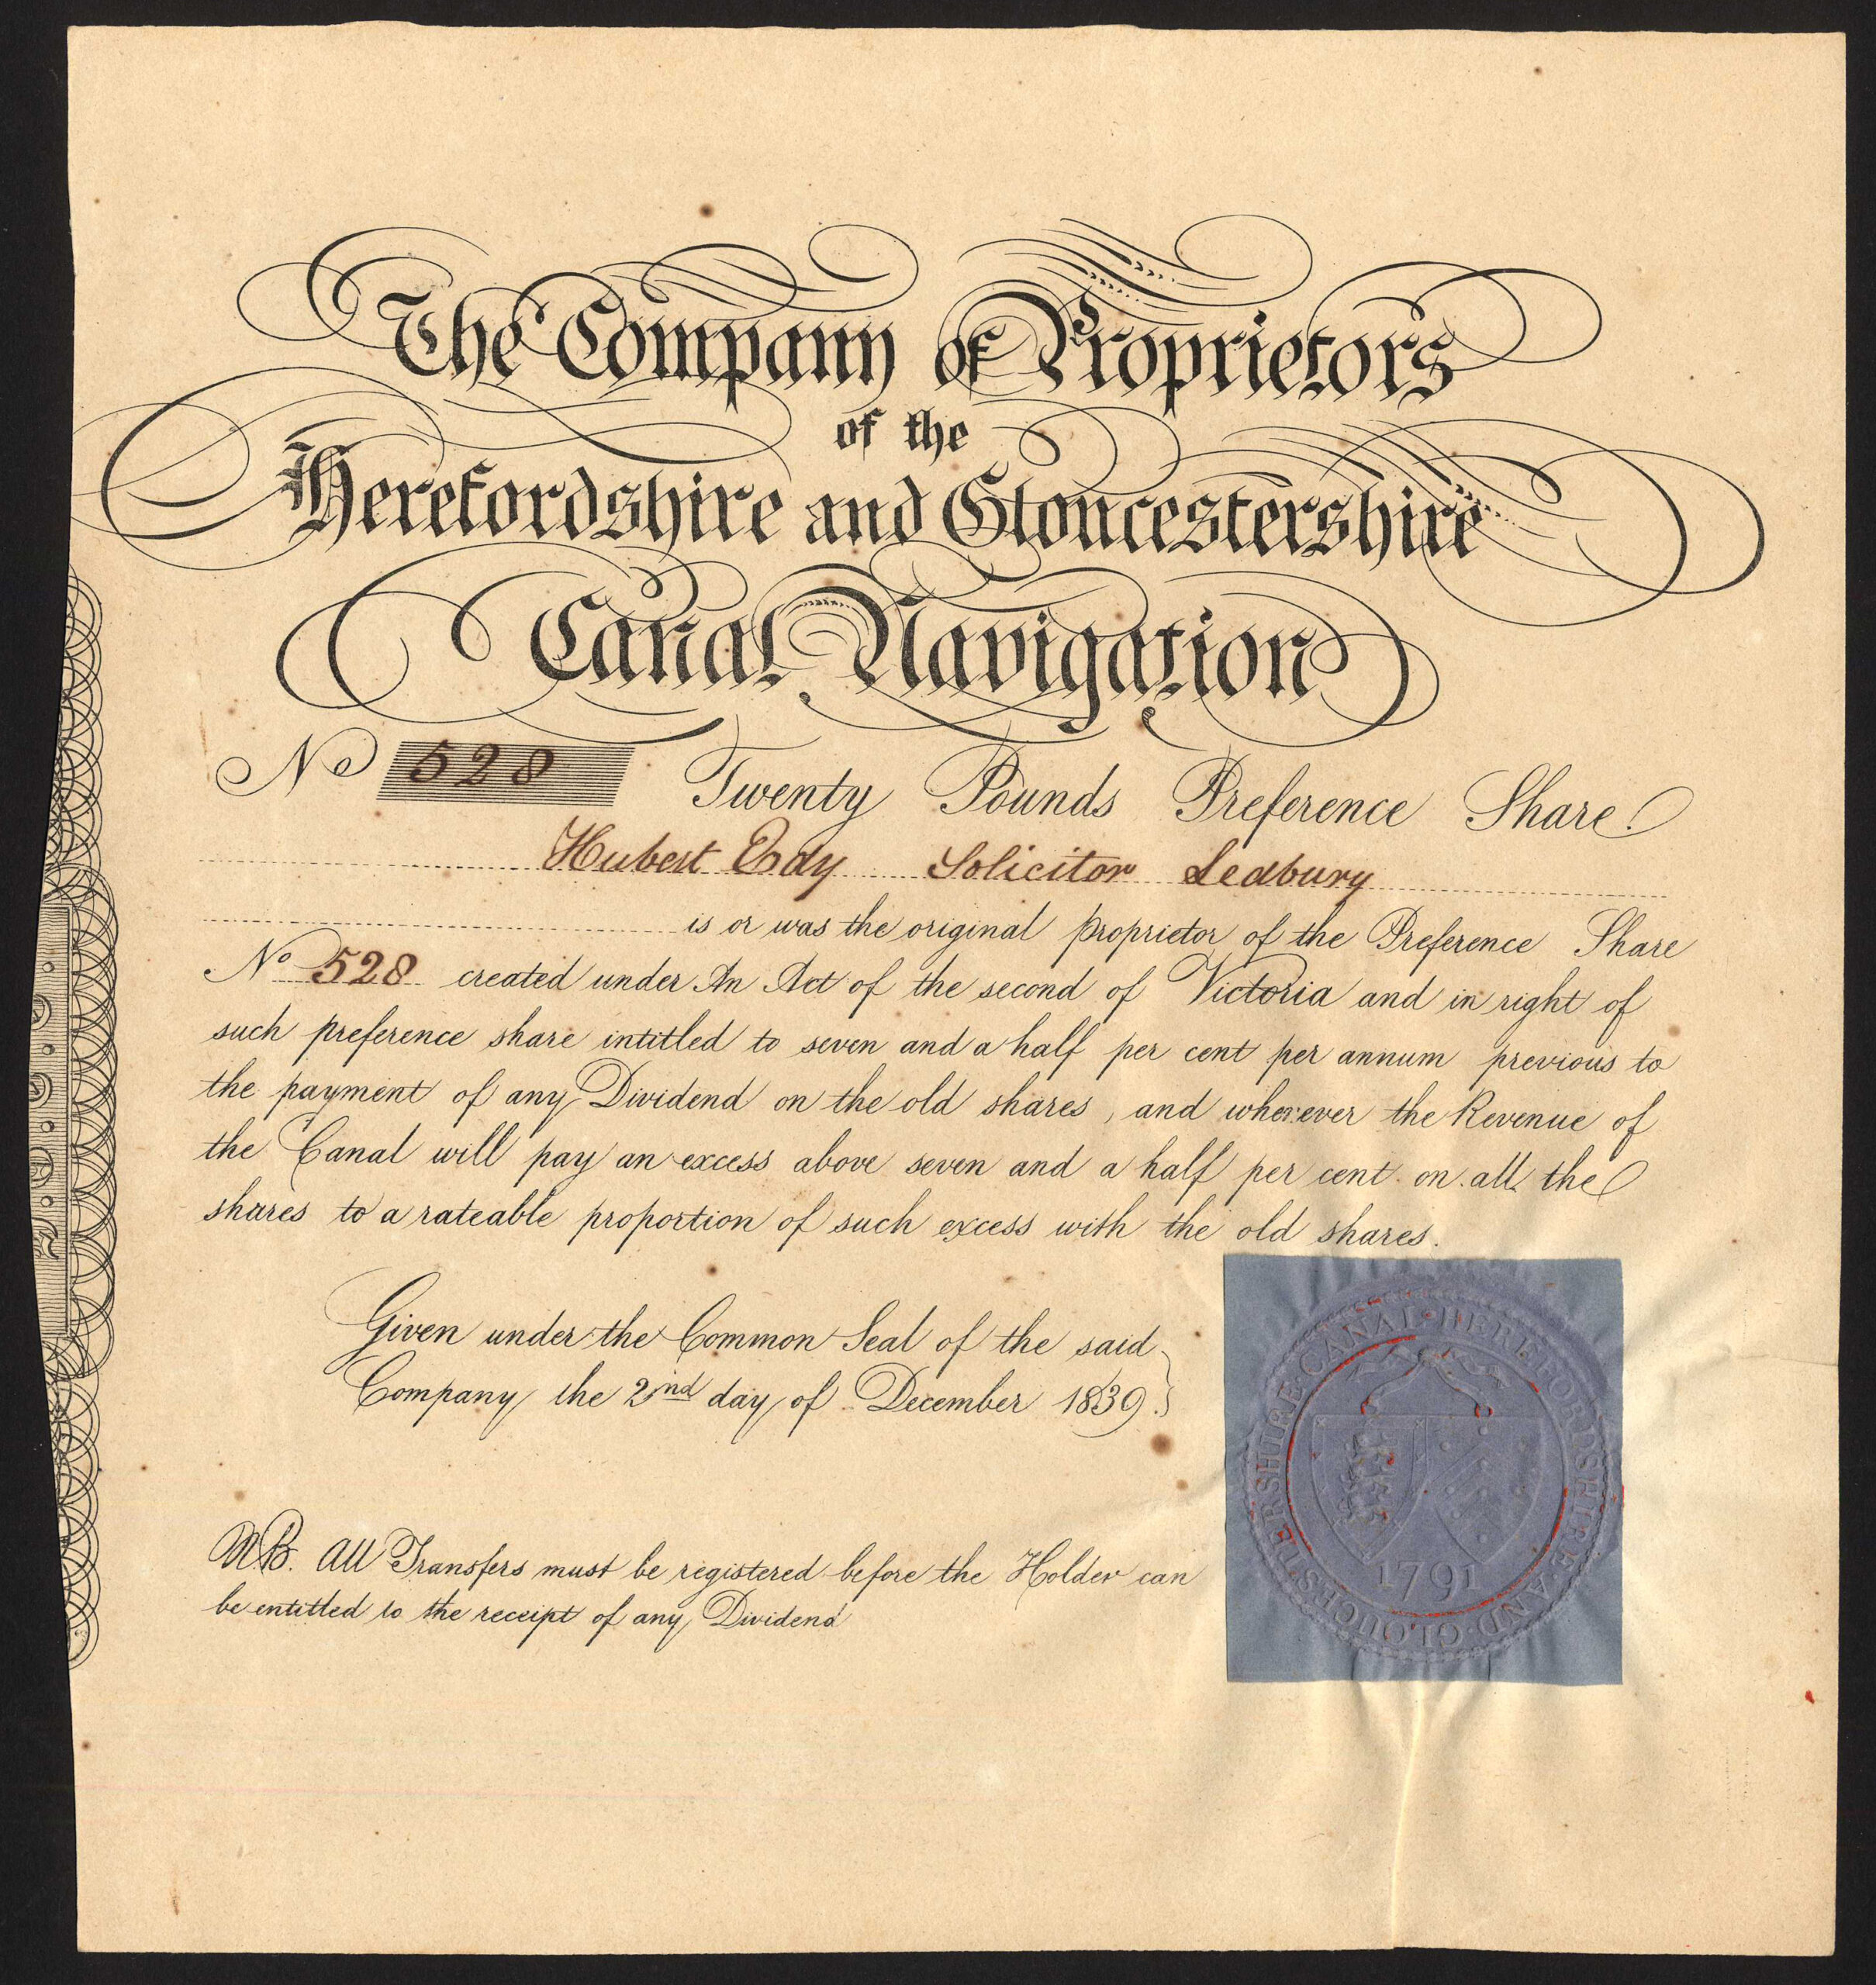 The Company of Proprietors
of the
Herefordshire and Gloucestershire
Canal Navigation
No 528 Twenty Pounds Preference Share
Hubert Edy Solicitor Ledbury
is or was the original proprietor of the Preference Share
No 528 created under An Act of the second of Victoria and in right of
such preference share intitled to seven and a half per cent per annum previous to
the payment of any Dividend on the old shares, and whenever the Revenue of
the Canal will pay an excess above seven and a half per cent on all the
shares to a rateable proportion of such excess with the old shares.
Given under the Common Seal of the said
Company the 2nd day of December 1839.
N.B. All Transfers must be registered before the Holder can
be entitled to the receipt of any Dividend
HEREFORDSHIRE AND GLOUCESTERSHIRE CANAL
1791